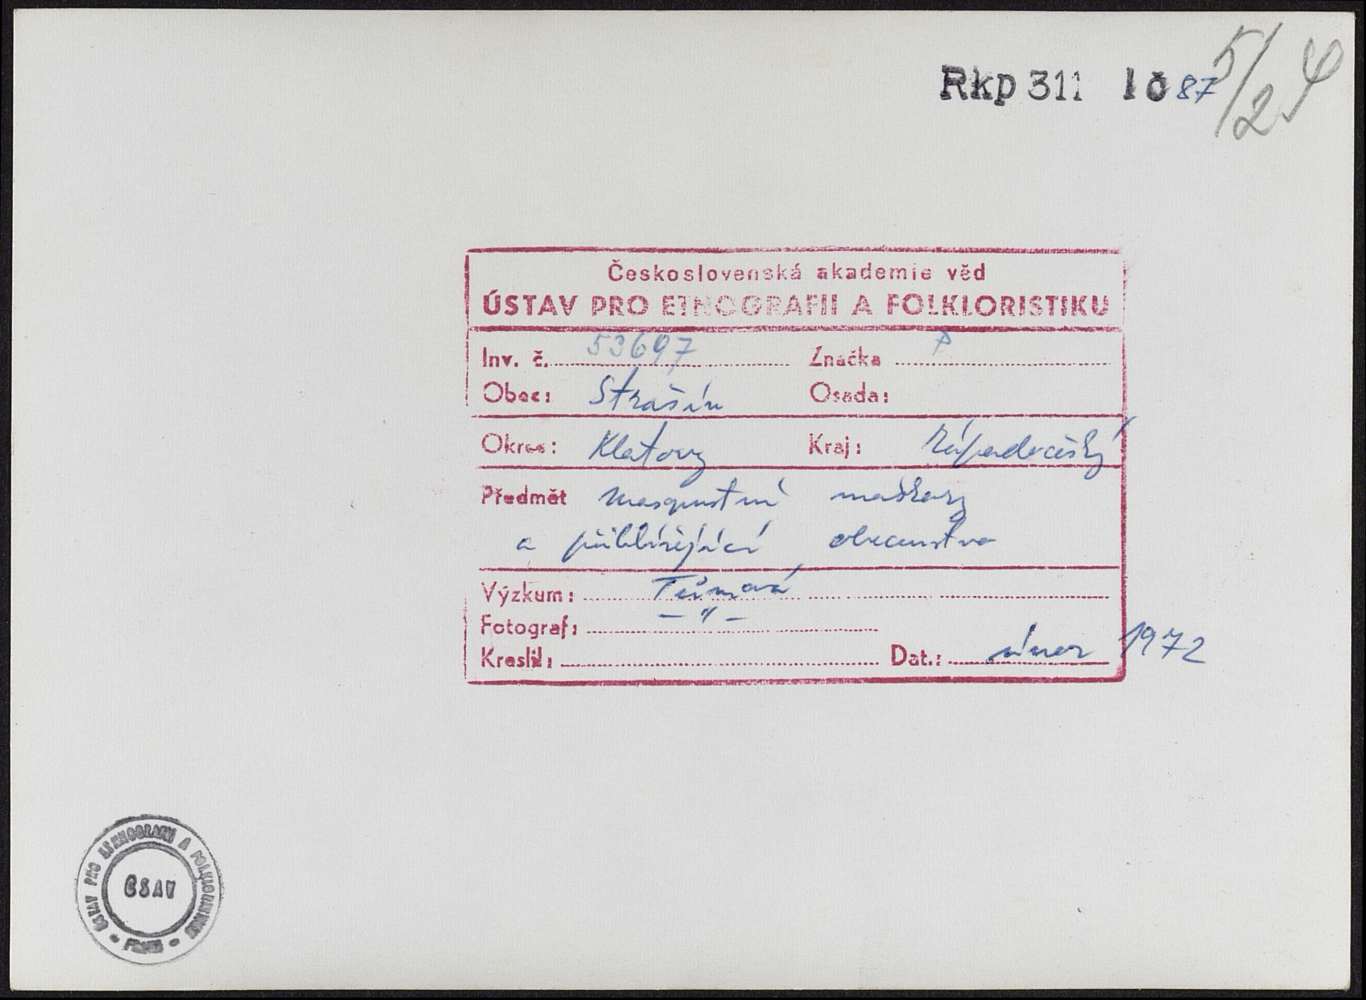 Rkp 311 10 87 5/24
Československá akademie věd
ÚSTAV PRO ETNOGRAFII A FOLKLORISTIKU
Inv. č. 53697 Značka P
Obec: Strašín Osada:
Okres: Klatovy Kraj: Západočeský
Předmět masopustní maškary
a přihlížející obecenstvo
Výzkum: Tůmová
Fotograf: —"—
Kreslil: Dat.: únor 1972
ÚSTAV PRO ETHNOGRAFII A FOLKLORISTIKU
ČSAV
PRAHA